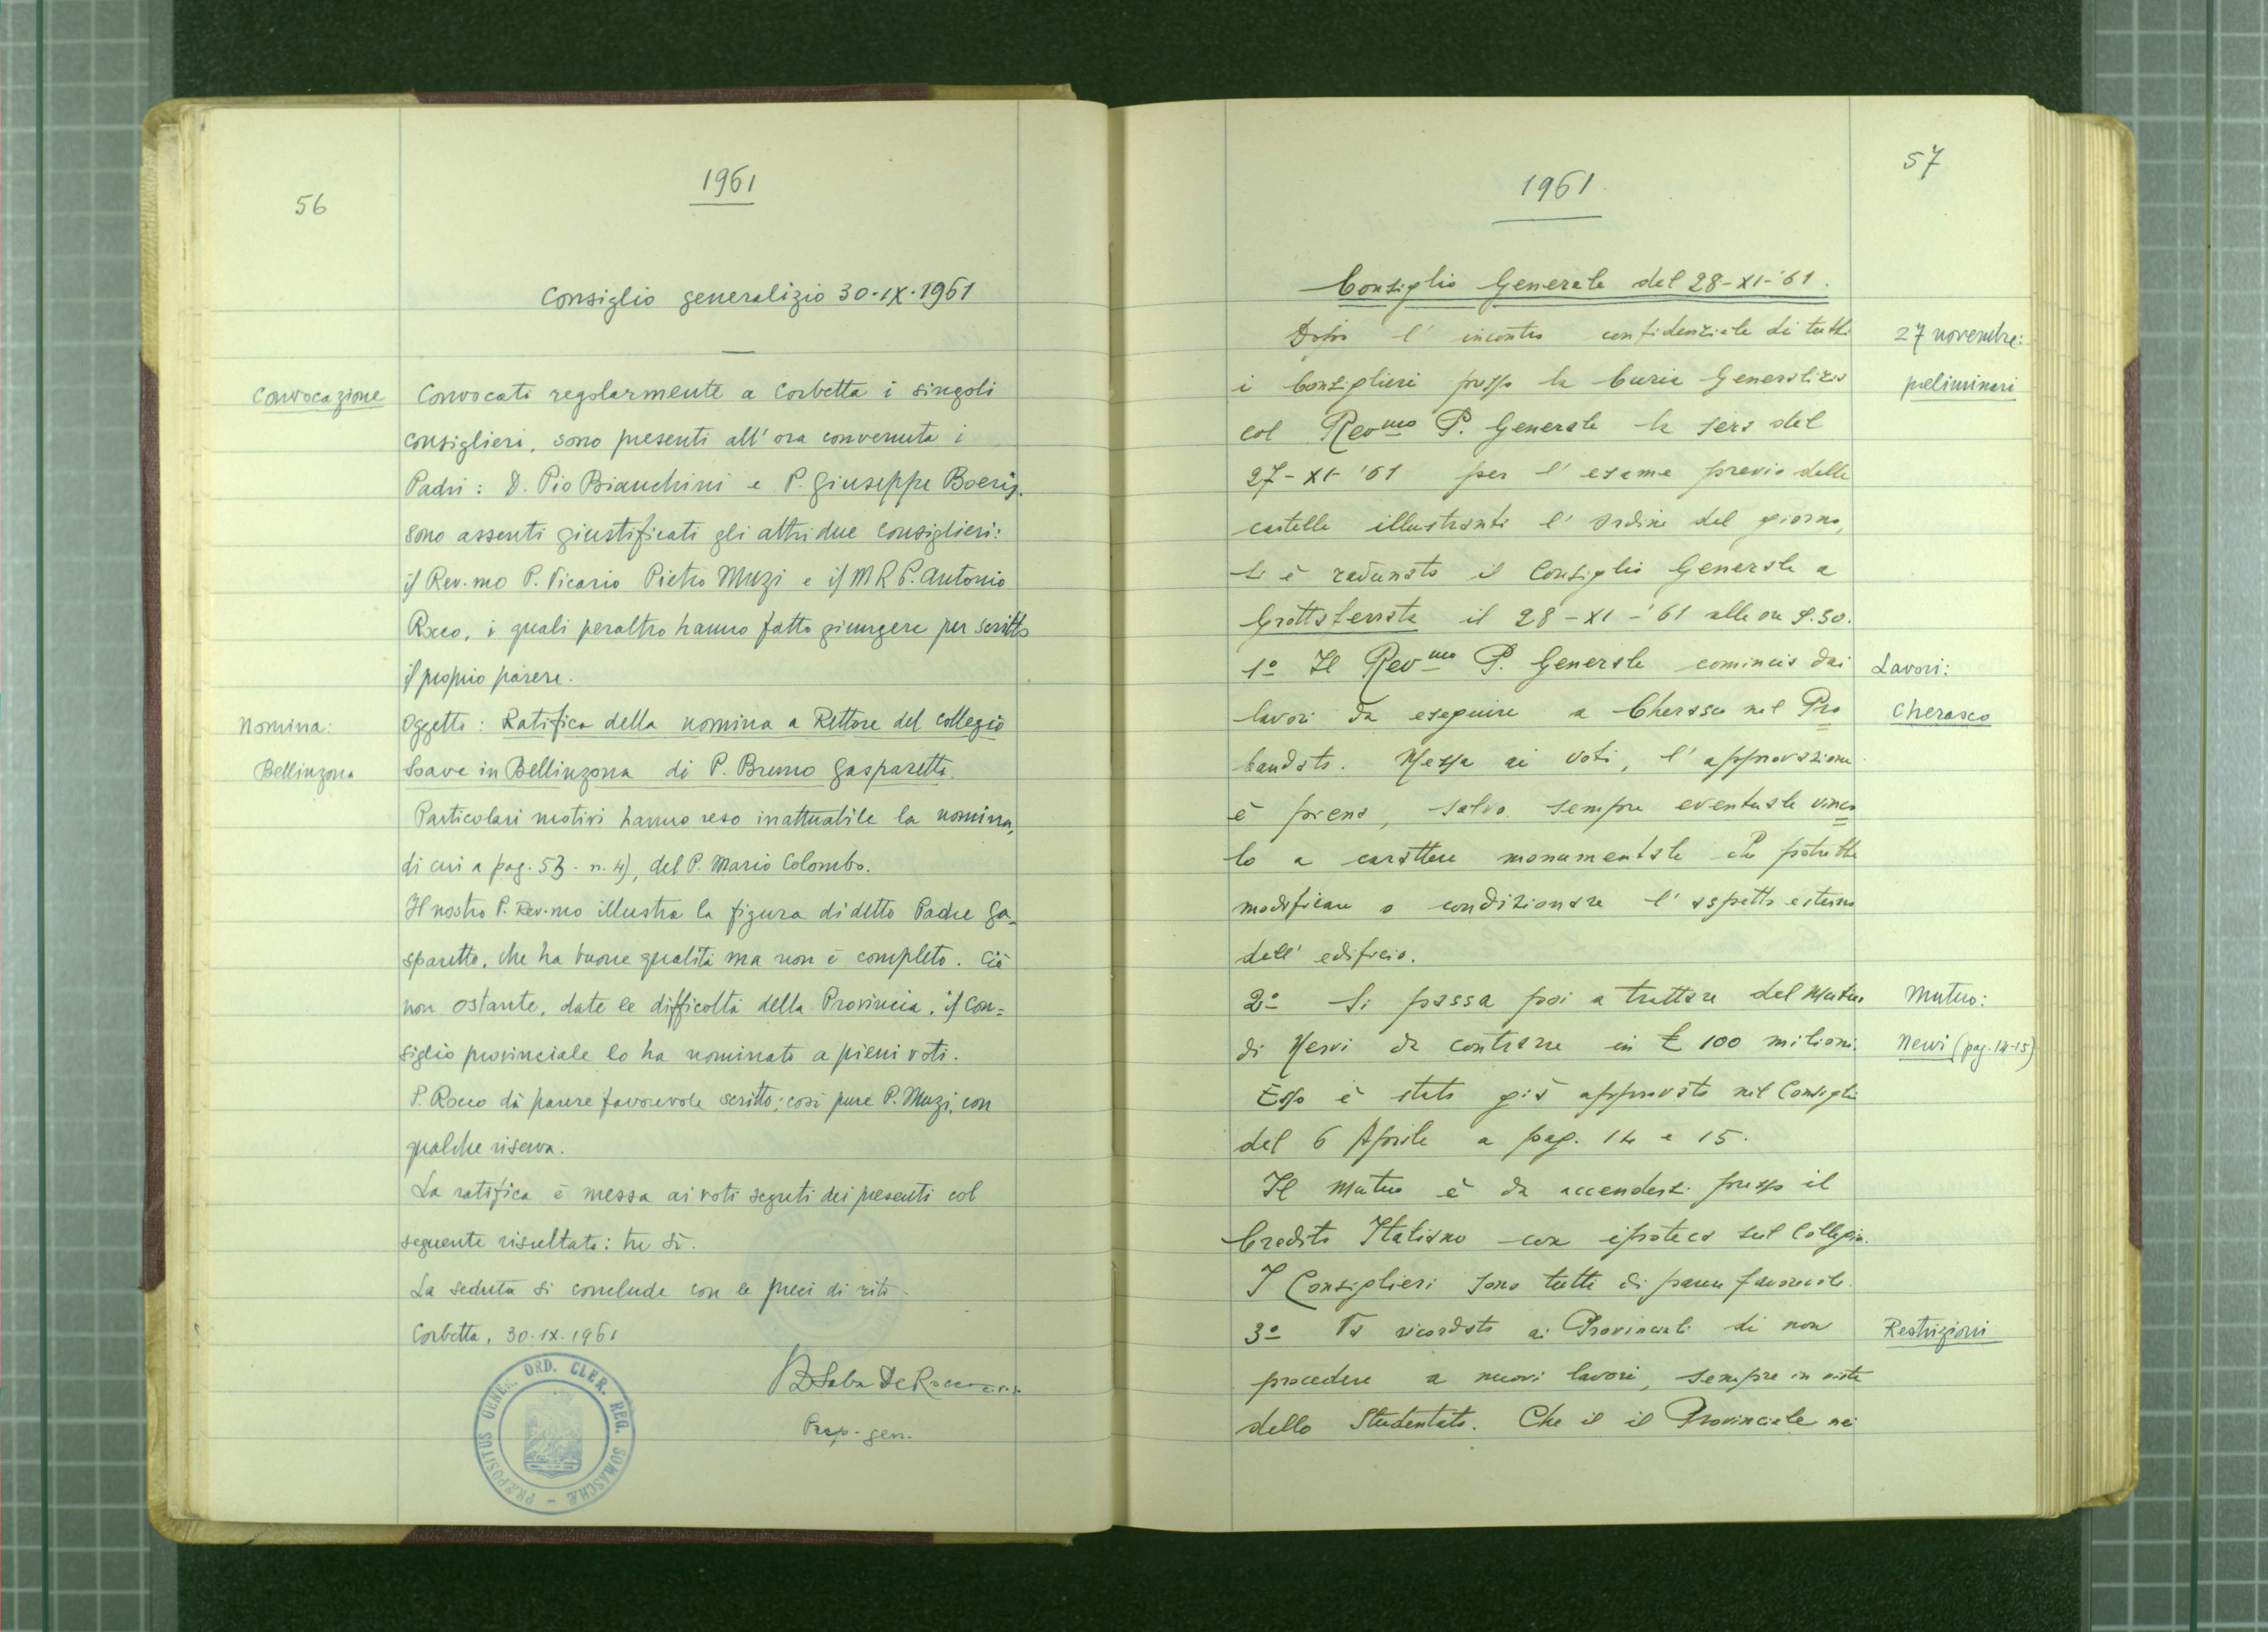 56
1961
Consiglio generalizio 30-IX-1961
Convocazione
Convocati regolarmente a Corbetta i singoli
consiglieri, sono presenti all'ora convenuta i
Padri: D. Pio Bianchini e P. Giuseppe Boeris.
Sono assenti giustificati gli altri due consiglieri:
il Rev.mo P. Vicario Pietro Muzi e il M R P. Antonio
Rocco, i quali peraltro hanno fatto giungere per scritto
il proprio parere.
Nomina:
Oggetto: Ratifica della nomina a Rettore del collegio
Bellinzona
Soave in Bellinzona di P. Bruno Gasparetto.
Particolari motivi hanno reso inattuabile la nomina,
di cui a pag. 53 - n. 4), del P. Mario Colombo.
Il nostro P. Rev.mo illustra la figura di detto Padre Ga-
sparetto, che ha buone qualità ma non è completo. Ciò
non ostante, date le difficoltà della Provincia, il con=
siglio provinciale lo ha nominato a pieni voti.
P. Rocco dà parere favorevole scritto; così pure P. Muzi, con
qualche riserva.
La ratifica è messa ai voti segreti dei presenti col
seguente risultato: tre sì.
La seduta si conclude con le preci di rito.
Corbetta, 30-IX-1961
B Saba De Rocco c.r.s.
Prep. gen.
PRÆPOSITUS GENER. ORD. CLER. REG. SOMASCHÆ
57
1961
Consiglio Generale del 28-XI-'61.
Dopo l'incontro confidenziale di tutti
27 novembre:
i Consiglieri presso la Curia Generalizia
preliminari
col Revmo P. Generale la sera del
27-XI-'61 per l'esame previo delle
cartelle illustranti l'ordine del giorno,
si è radunato il Consiglio Generale a
Grottaferrata il 28-XI-'61 alle ore 9.30.
1º Il Revmo P. Generale comincia dai
Lavori:
lavori da eseguire a Cherasco nel Pro
Cherasco
bandato. Messa ai voti, l'approvazione
è piena, salvo sempre eventuale vinco
lo a carattere monumentale che potrebbe
modificare o condizionare l'aspetto esterno
dell'edificio.
2º Si passa poi a trattare del Mutuo
Mutuo:
di Nervi da contrarre in £ 100 milioni.
Nervi (pag. 14-15)
Esso è stato già approvato nel Consiglio
del 6 Aprile a pag. 14 e 15.
Il mutuo è da accendersi presso il
Credito Italiano con ipoteca sul Collegio.
I Consiglieri sono tutti di parere favorevole.
3º Va ricordato ai Provinciali di non
Restrizioni
procedere a nuovi lavori, sempre in vista
dello Studentato. Che il il Provinciale nei